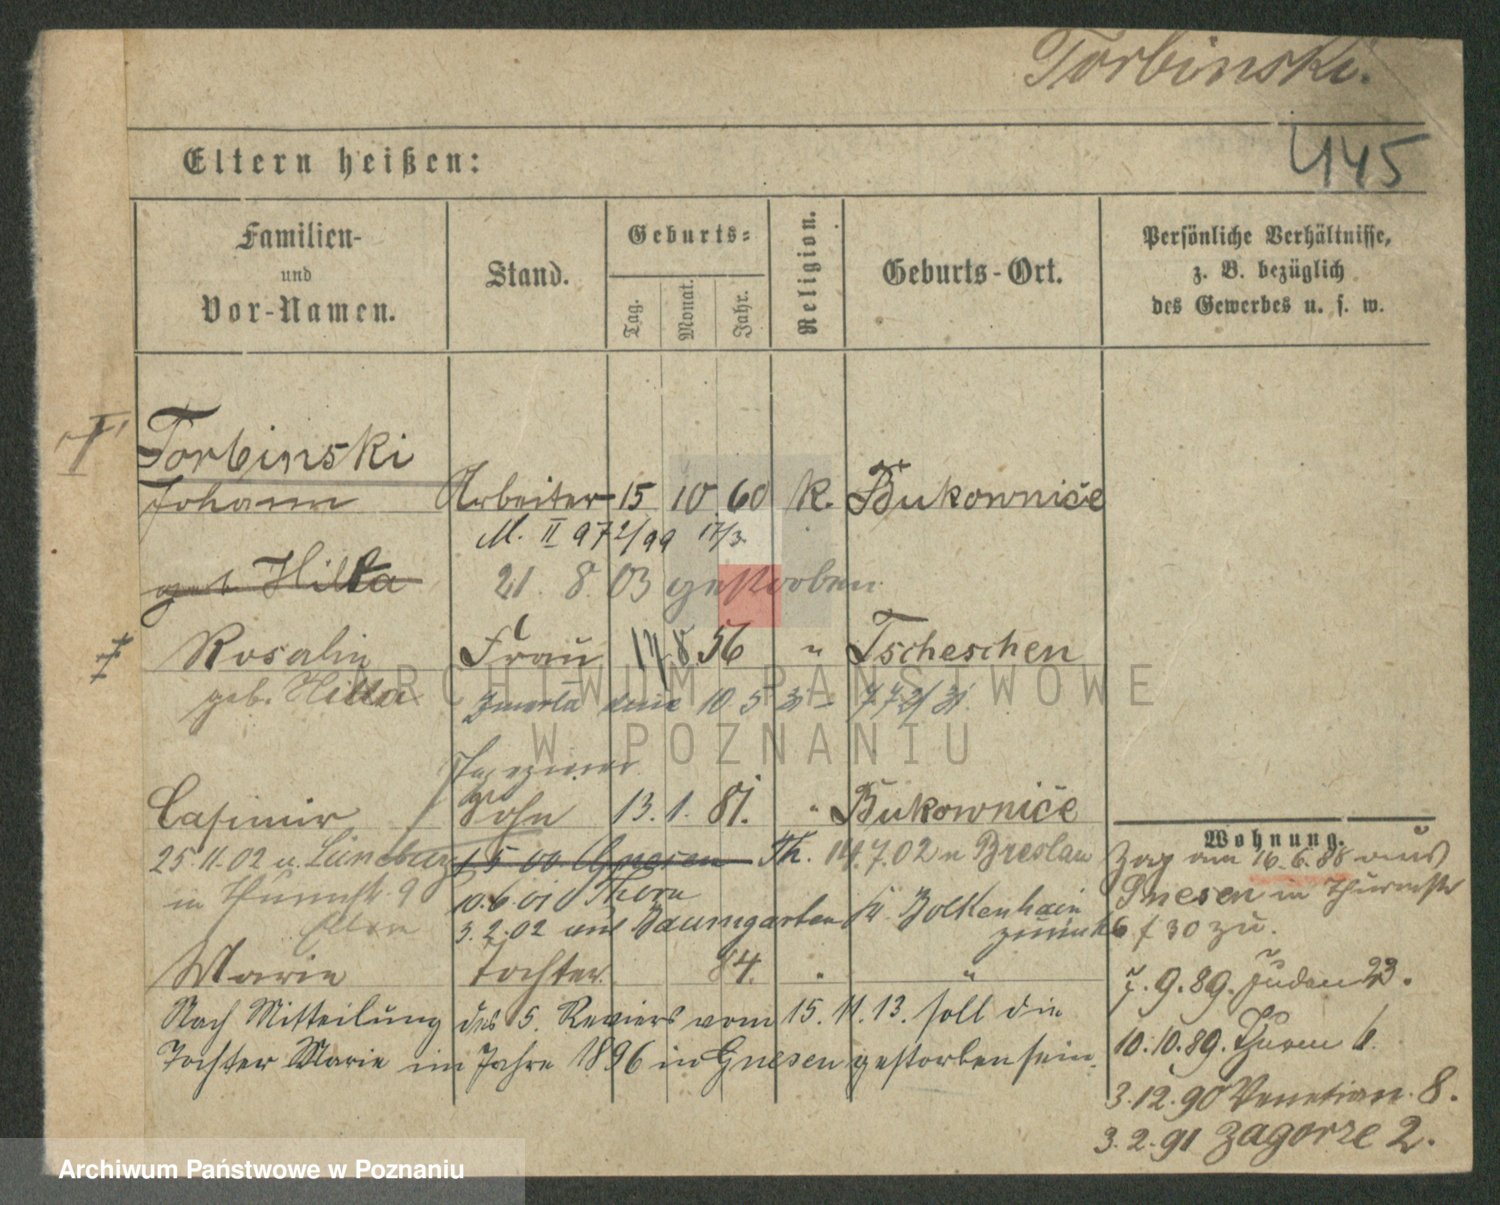 Torbinski.
445
Eltern heißen:
Familien-
und
Vor-Namen.
Stand.
Geburts-
Tag.
Monat.
Jahr.
Religion.
Geburts-Ort.
Persönliche Verhältnisse,
z. B. bezüglich
des Gewerbes u. s. w.
Torbinski
Johann Arbeiter 15 10 60 K. Bukownice
M. II 97 2/99 17/3
geb. Hilta 21. 8. 03 gestorben
Rosalie Frau 17 8. 56 " Tscheschen
geb. Hilta 10. 5
Casimir Sohn 13. 1. 81. " Bukownice
25.11.02 u. Lüneburg 1 5 00 Gnesen Th. 14.7.02 n Breslau
in 9 10.6.01 Thorn
Eltern 3.2.02 aus Baumgarten Kr. Bolkenhain
zurück
Marie Tochter. 84. " "
Nach Mitteilung des 5. Reviers vom 15.11.13. soll die
Tochter Marie im Jahre 1896 in Gnesen gestorben sein.
Wohnung.
Zog am 16.6.88 aus
Gnesen in Thurmstr
6 f 30 zu.
7.9.89. Juden 23.
10.10.89. Thurm 6.
3.12.90 Venetian. 8.
3.2.91 Zagorze 2.
ARCHIWUM PAŃSTWOWE
W POZNANIU
Archiwum Państwowe w Poznaniu